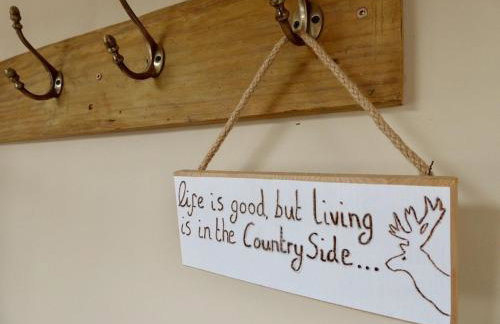 life is good, but living
is in the Country Side...